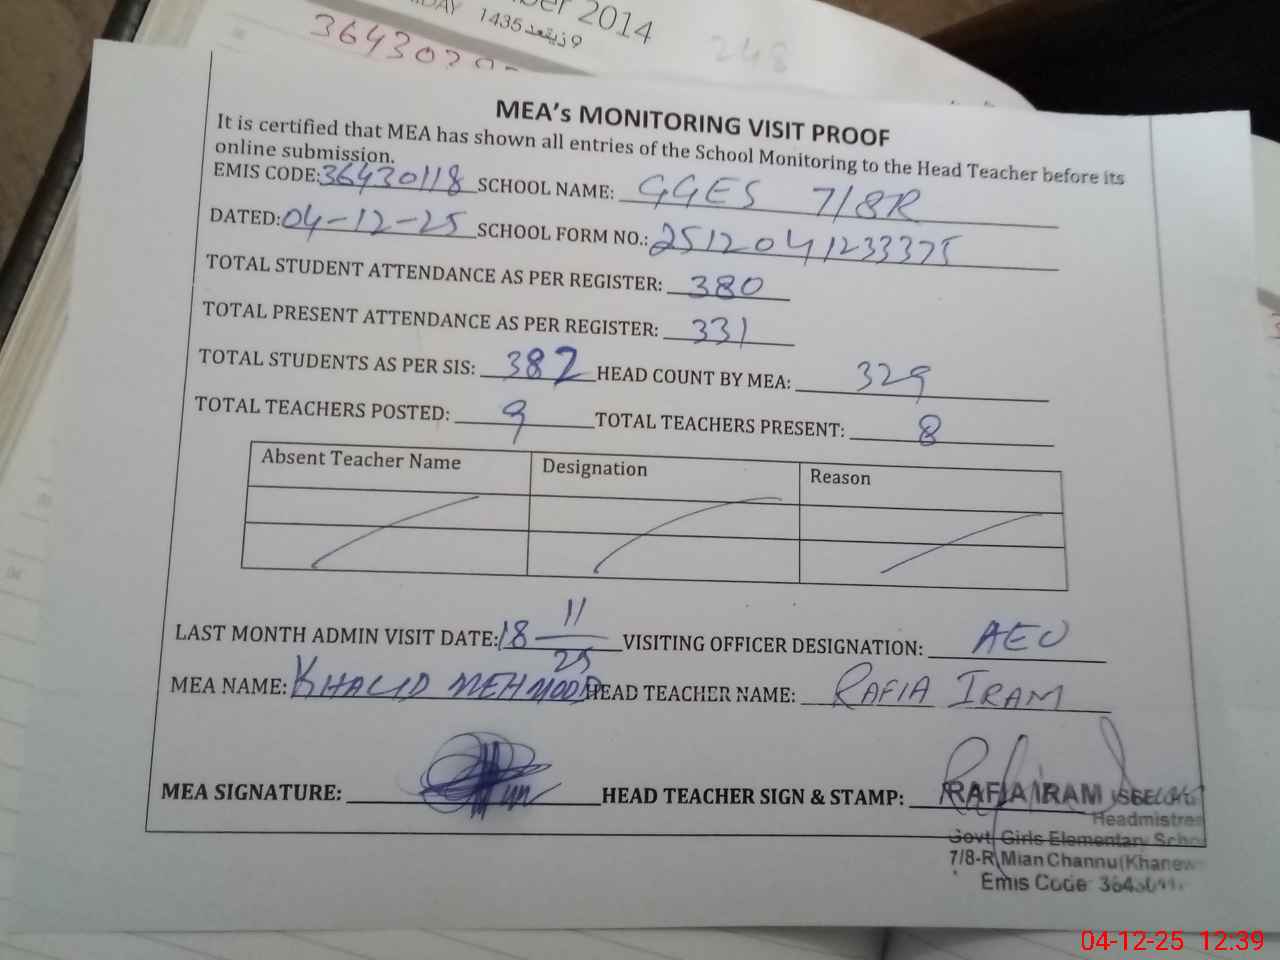 2014
1435
248
MEA's MONITORING VISIT PROOF
It is certified that MEA has shown all entries of the School Monitoring to the Head Teacher before its
online submission.
EMIS CODE: 36430118 SCHOOL NAME: GGES 7/8R
DATED: 04-12-25 SCHOOL FORM NO.: 2512041233375
TOTAL STUDENT ATTENDANCE AS PER REGISTER: 380
TOTAL PRESENT ATTENDANCE AS PER REGISTER: 331
TOTAL STUDENTS AS PER SIS: 382 HEAD COUNT BY MEA: 329
TOTAL TEACHERS POSTED: 9 TOTAL TEACHERS PRESENT: 8
Absent Teacher Name Designation Reason
LAST MONTH ADMIN VISIT DATE: 18 11/25 VISITING OFFICER DESIGNATION: AEO
MEA NAME: KHALID MEHMOOD HEAD TEACHER NAME: RAFIA IRAM
MEA SIGNATURE: HEAD TEACHER SIGN & STAMP: RAFIA IRAM
Headmistres
Govt. Girls Elementary Schoo
7/8-R Mian Channu (Khanew
Emis Code
04-12-25 12:39